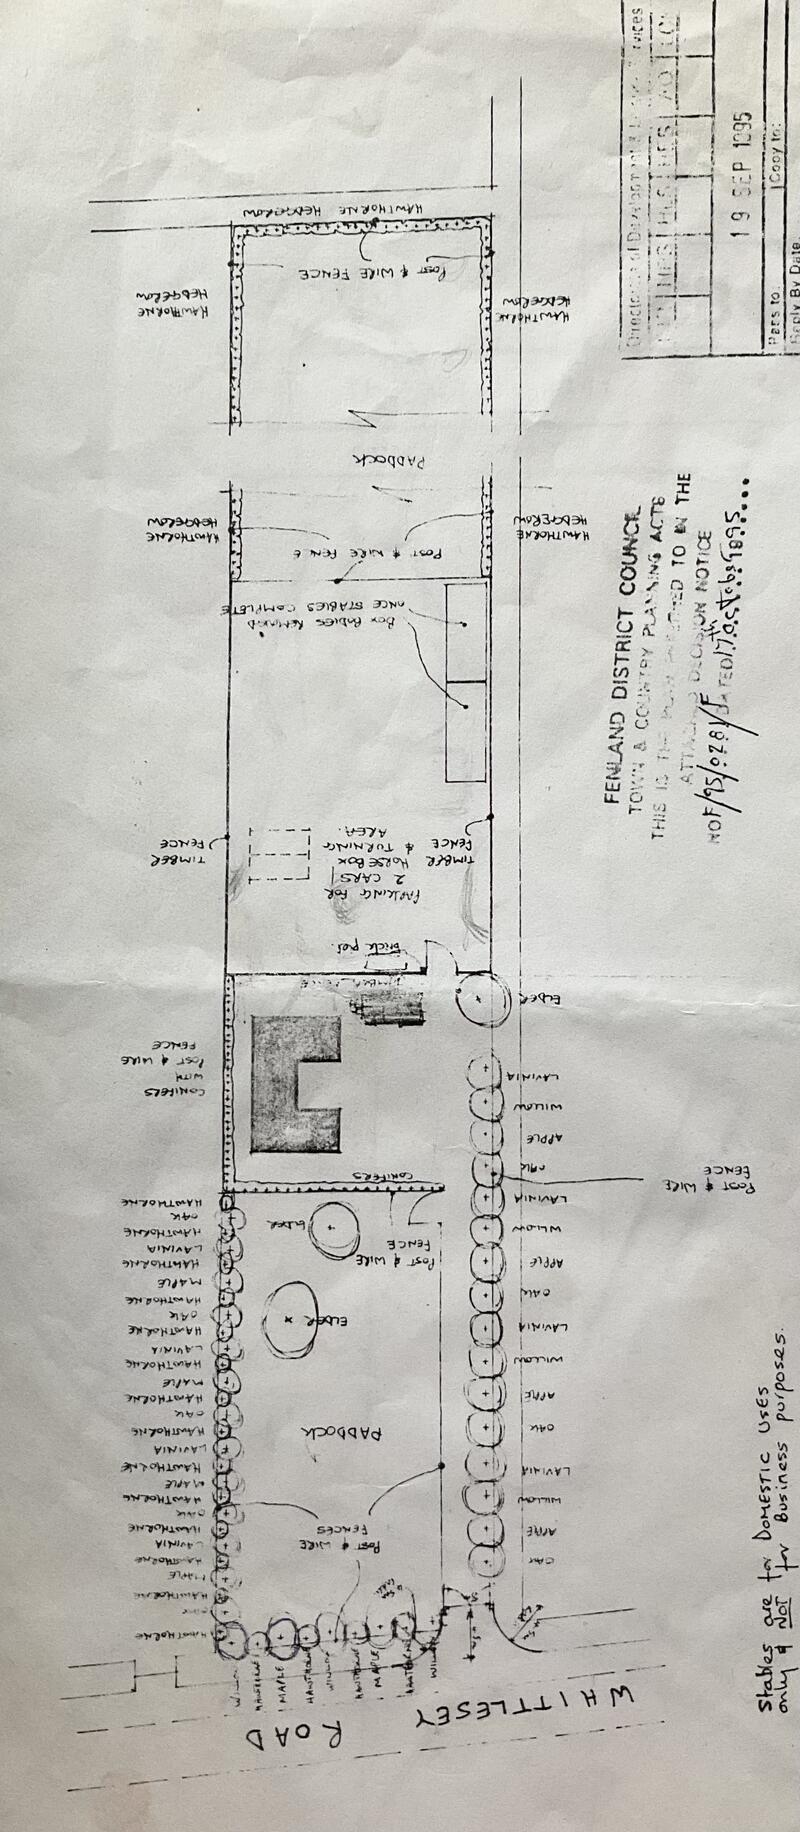 HAWTHORNE HEDGEROW
POST & WIRE FENCE
HAWTHORNE
HEDGEROW
HAWTHORNE
HEDGEROW
PADDOCK
HAWTHORNE
HEDGEROW
HAWTHORNE
HEDGEROW
POST & WIRE FENCE
BOX BODIES REMOVED
ONCE STABLES COMPLETE
TIMBER
FENCE
TIMBER
FENCE
PARKING FOR
2 CARS/
HORSEBOX
& TURNING
AREA.
TIMBER FENCE
ELDER
CONIFERS
WITH
POST & WIRE
FENCE
CONIFERS
LAVINIA
WILLOW
APPLE
OAK
LAVINIA
WILLOW
APPLE
OAK
LAVINIA
WILLOW
APPLE
OAK
LAVINIA
WILLOW
APPLE
OAK
POST & WIRE
FENCE
POST & WIRE
FENCE
ELDER
ELDER
PADDOCK
POST & WIRE
FENCES
HAWTHORNE
OAK
HAWTHORNE
LAVINIA
HAWTHORNE
MAPLE
HAWTHORNE
OAK
HAWTHORNE
LAVINIA
HAWTHORNE
MAPLE
HAWTHORNE
OAK
HAWTHORNE
LAVINIA
HAWTHORNE
MAPLE
HAWTHORNE
OAK
HAWTHORNE
LAVINIA
HAWTHORNE
MAPLE
HAWTHORNE
HAWTHORNE
WILLOW
HAWTHORNE
MAPLE
HAWTHORNE
WILLOW
HAWTHORNE
MAPLE
HAWTHORNE
WILLOW
WHITTLESEY ROAD
19 SEP 1995
Pass to:
Copy to:
Reply By Date:
FENLAND DISTRICT COUNCIL
TOWN & COUNTRY PLANNING ACTS
THIS IS THE PLAN REFERRED TO IN THE
ATTACHED DECISION NOTICE
NO F/95/0281/F DATED 17th Oct 1995
Stables are for DOMESTIC USES
only & NOT for Business purposes.